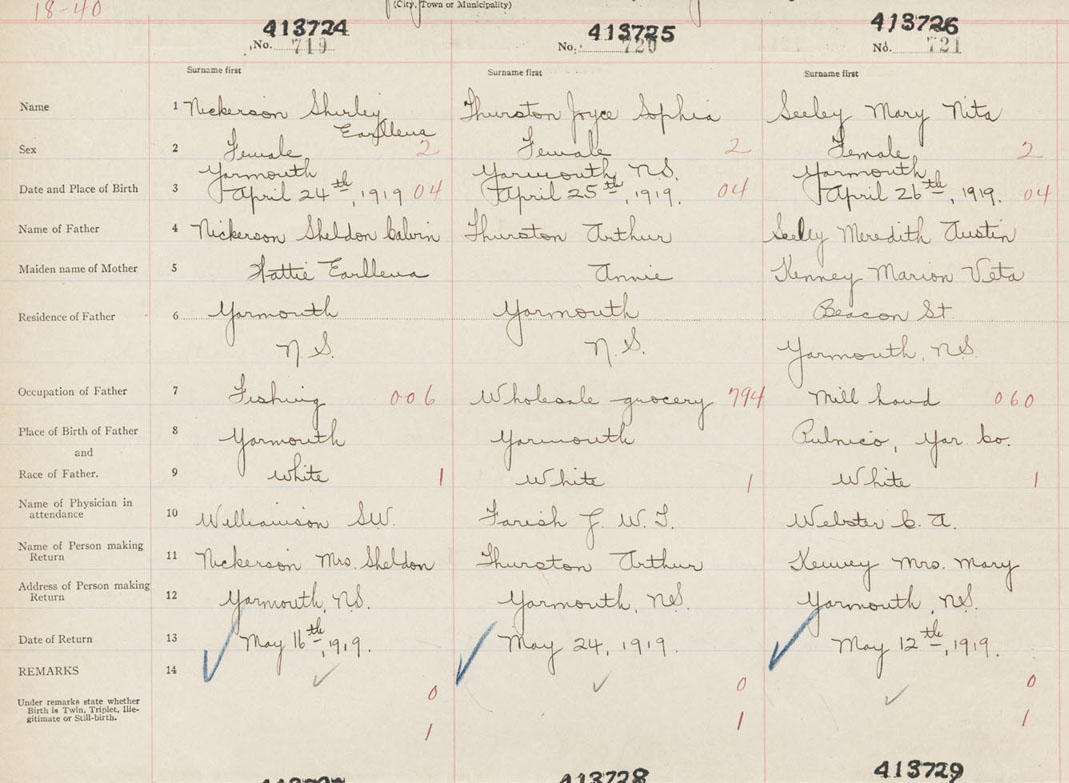 18-40
(City, Town or Municipality)
413724
No. 719
413725
No. 720
413726
No. 721
Surname first
Surname first
Surname first
Name 1 Nickerson Shirley Thurston Joyce Sophia Seeley Mary Nita
Earllena
Sex 2 Female 2 Female 2 Female 2
Yarmouth Yarmouth, N.S. Yarmouth
Date and Place of Birth 3 April 24th, 1919 04 April 25th, 1919. 04 April 26th, 1919. 04
Name of Father 4 Nickerson Sheldon Calvin Thurston Arthur Seeley Meredith Austin
Maiden name of Mother 5 Hattie Earllena Annie Kenney Marion Veta
Residence of Father 6 Yarmouth Yarmouth Beacon St.
N.S. N.S. Yarmouth, N.S.
Occupation of Father 7 Fishing 006 Wholesale grocery 794 Mill hand 060
Place of Birth of Father 8 Yarmouth Yarmouth Pubnico, Yar. Co.
and
Race of Father. 9 White 1 White 1 White 1
Name of Physician in
attendance 10 Williamson S.W. Farish J. W. T. Webster C. A.
Name of Person making
Return 11 Nickerson Mrs. Sheldon Thurston Arthur Kenney Mrs. Mary
Address of Person making
Return 12 Yarmouth, N.S. Yarmouth, N.S. Yarmouth, N.S.
Date of Return 13 May 16th, 1919. May 24, 1919. May 12th, 1919.
REMARKS 14
0 0 0
Under remarks state whether
Birth is Twin, Triplet, Ille-
gitimate or Still-birth.
1 1 1
413728
413729